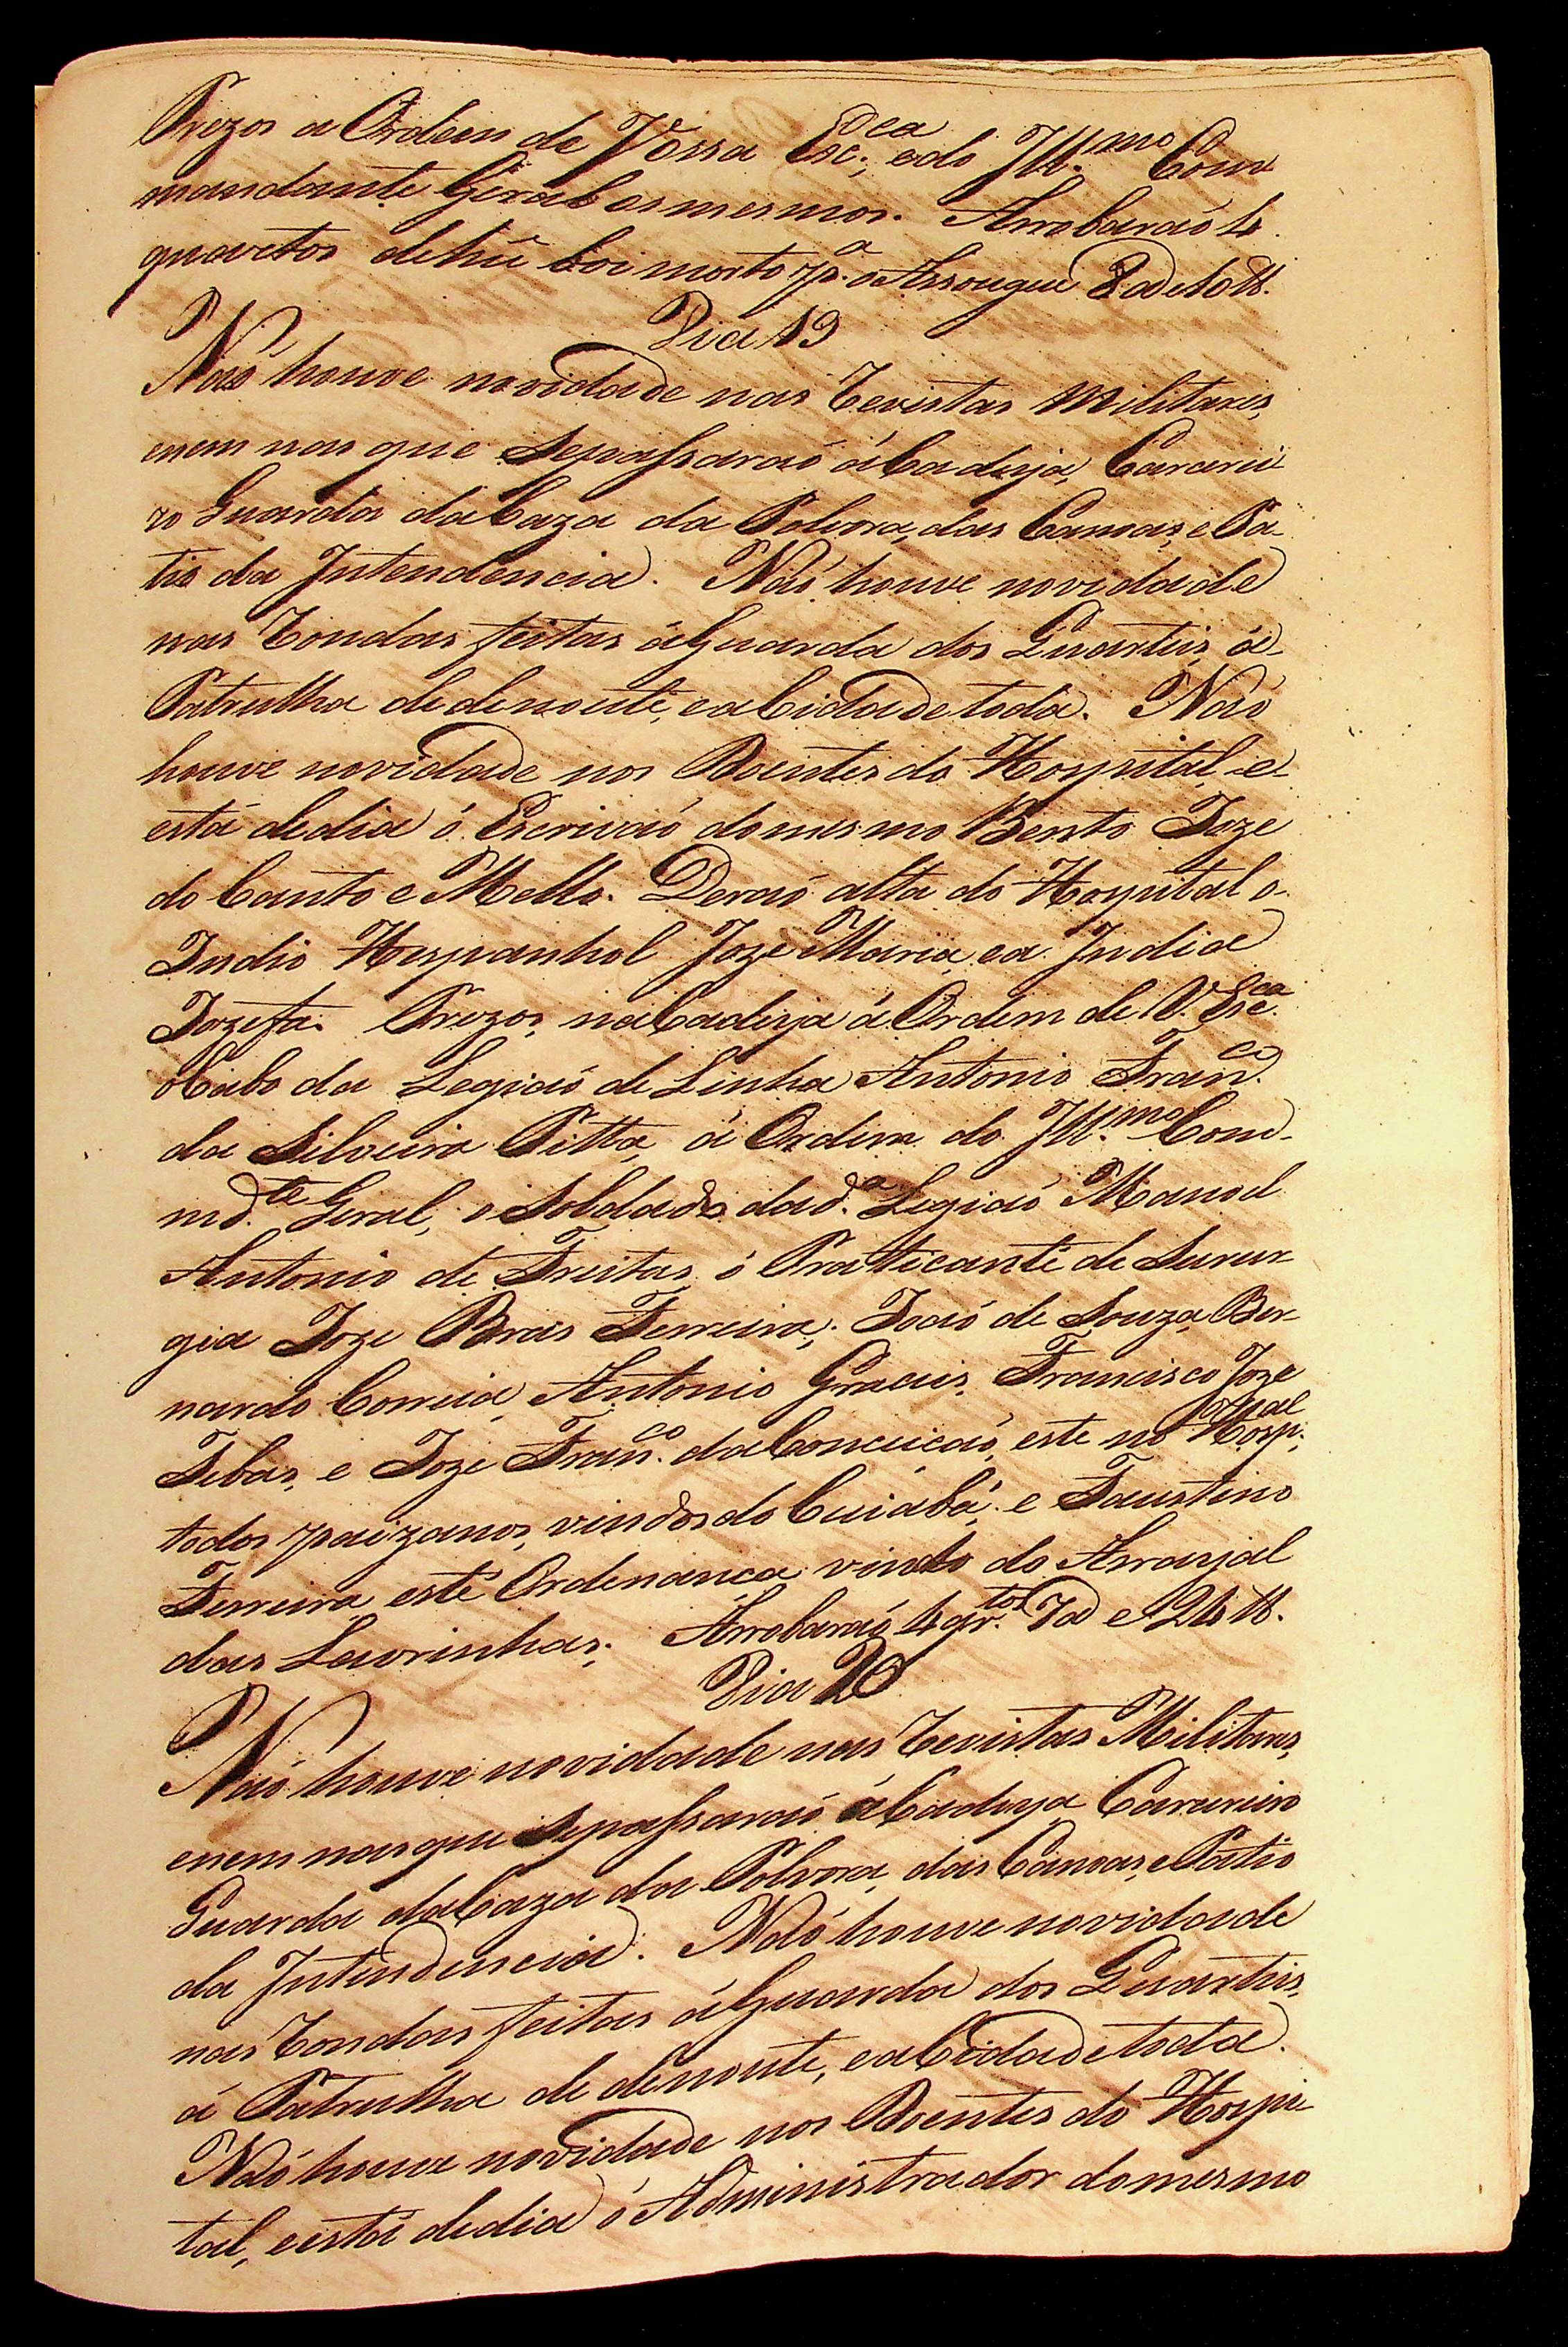 Prezos a Ordem de Vossa Exc.ca, e do Ill.mo Com
mandante Geral os mesmos. Arrobaraõ 4
quartos de hũ boi morto p.a o Assougue 8@ e 10 ℔.
Dia 19
Naõ houve novidade nas Revistas Militares,
enem nas que Sepassaraõ áCadeya, Carcerei-
ro Guardas daCaza da Polvora, das Canoas, e Pa-
tio da Intendencia. Naõ houve novidade
nas Rondas feitas áGuarda dos Quarteis, á
Patrulha dedenoute, eaCidade toda. Naõ
houve novidade nos Doentes do Hospital, e
está dedia ó Escrivaõ domesmo Bento Joze
do Canto e Mello. Deraõ alta do Hospital o
Indio Hespanhol Joze Maria, ea India
Jozefa. Prezos, naCadeya á Ordem de V. Exc.ca
oCabo da Legiaõ de Linha Antonio Fran.co
da Silveira Pitta, á Ordem do Ill.mo Com-
md.te Geral, o Soldado dad.a Legiaõ Manoel
Antonio de Freitas, ó Praticante de Surur-
gia Joze Bras Ferreira; Joaõ de Souza, Ber-
nardo Correia, Antonio Gracis, Francisco Joze
Tebas, e Joze Fran.co daConceiçaõ, este no Hosp.tal
todos paizanos, vindos do Cuiabá, e Faustino
Ferreira este Ordenança vindo do Arrayal
das Lavrinhas; Arrobaraõ 4 qr.tos 7@ e 24 ℔.
Dia 20
Naõ houve novidade nas Revistas Militares,
enem nasque Sepassaraõ áCadeya Carcereiro
Guarda daCaza da Polvora, das Canoas, e Patio
da Intendencia. Naõ houve novidade
nas Rondas feitas áGuarda dos Quarteis,
á Patrulha dedenoute, eaCidade toda.
Naõ houve novidade nos Doentes do Hospi-
tal, eestá dedia ó Administrador domesmo